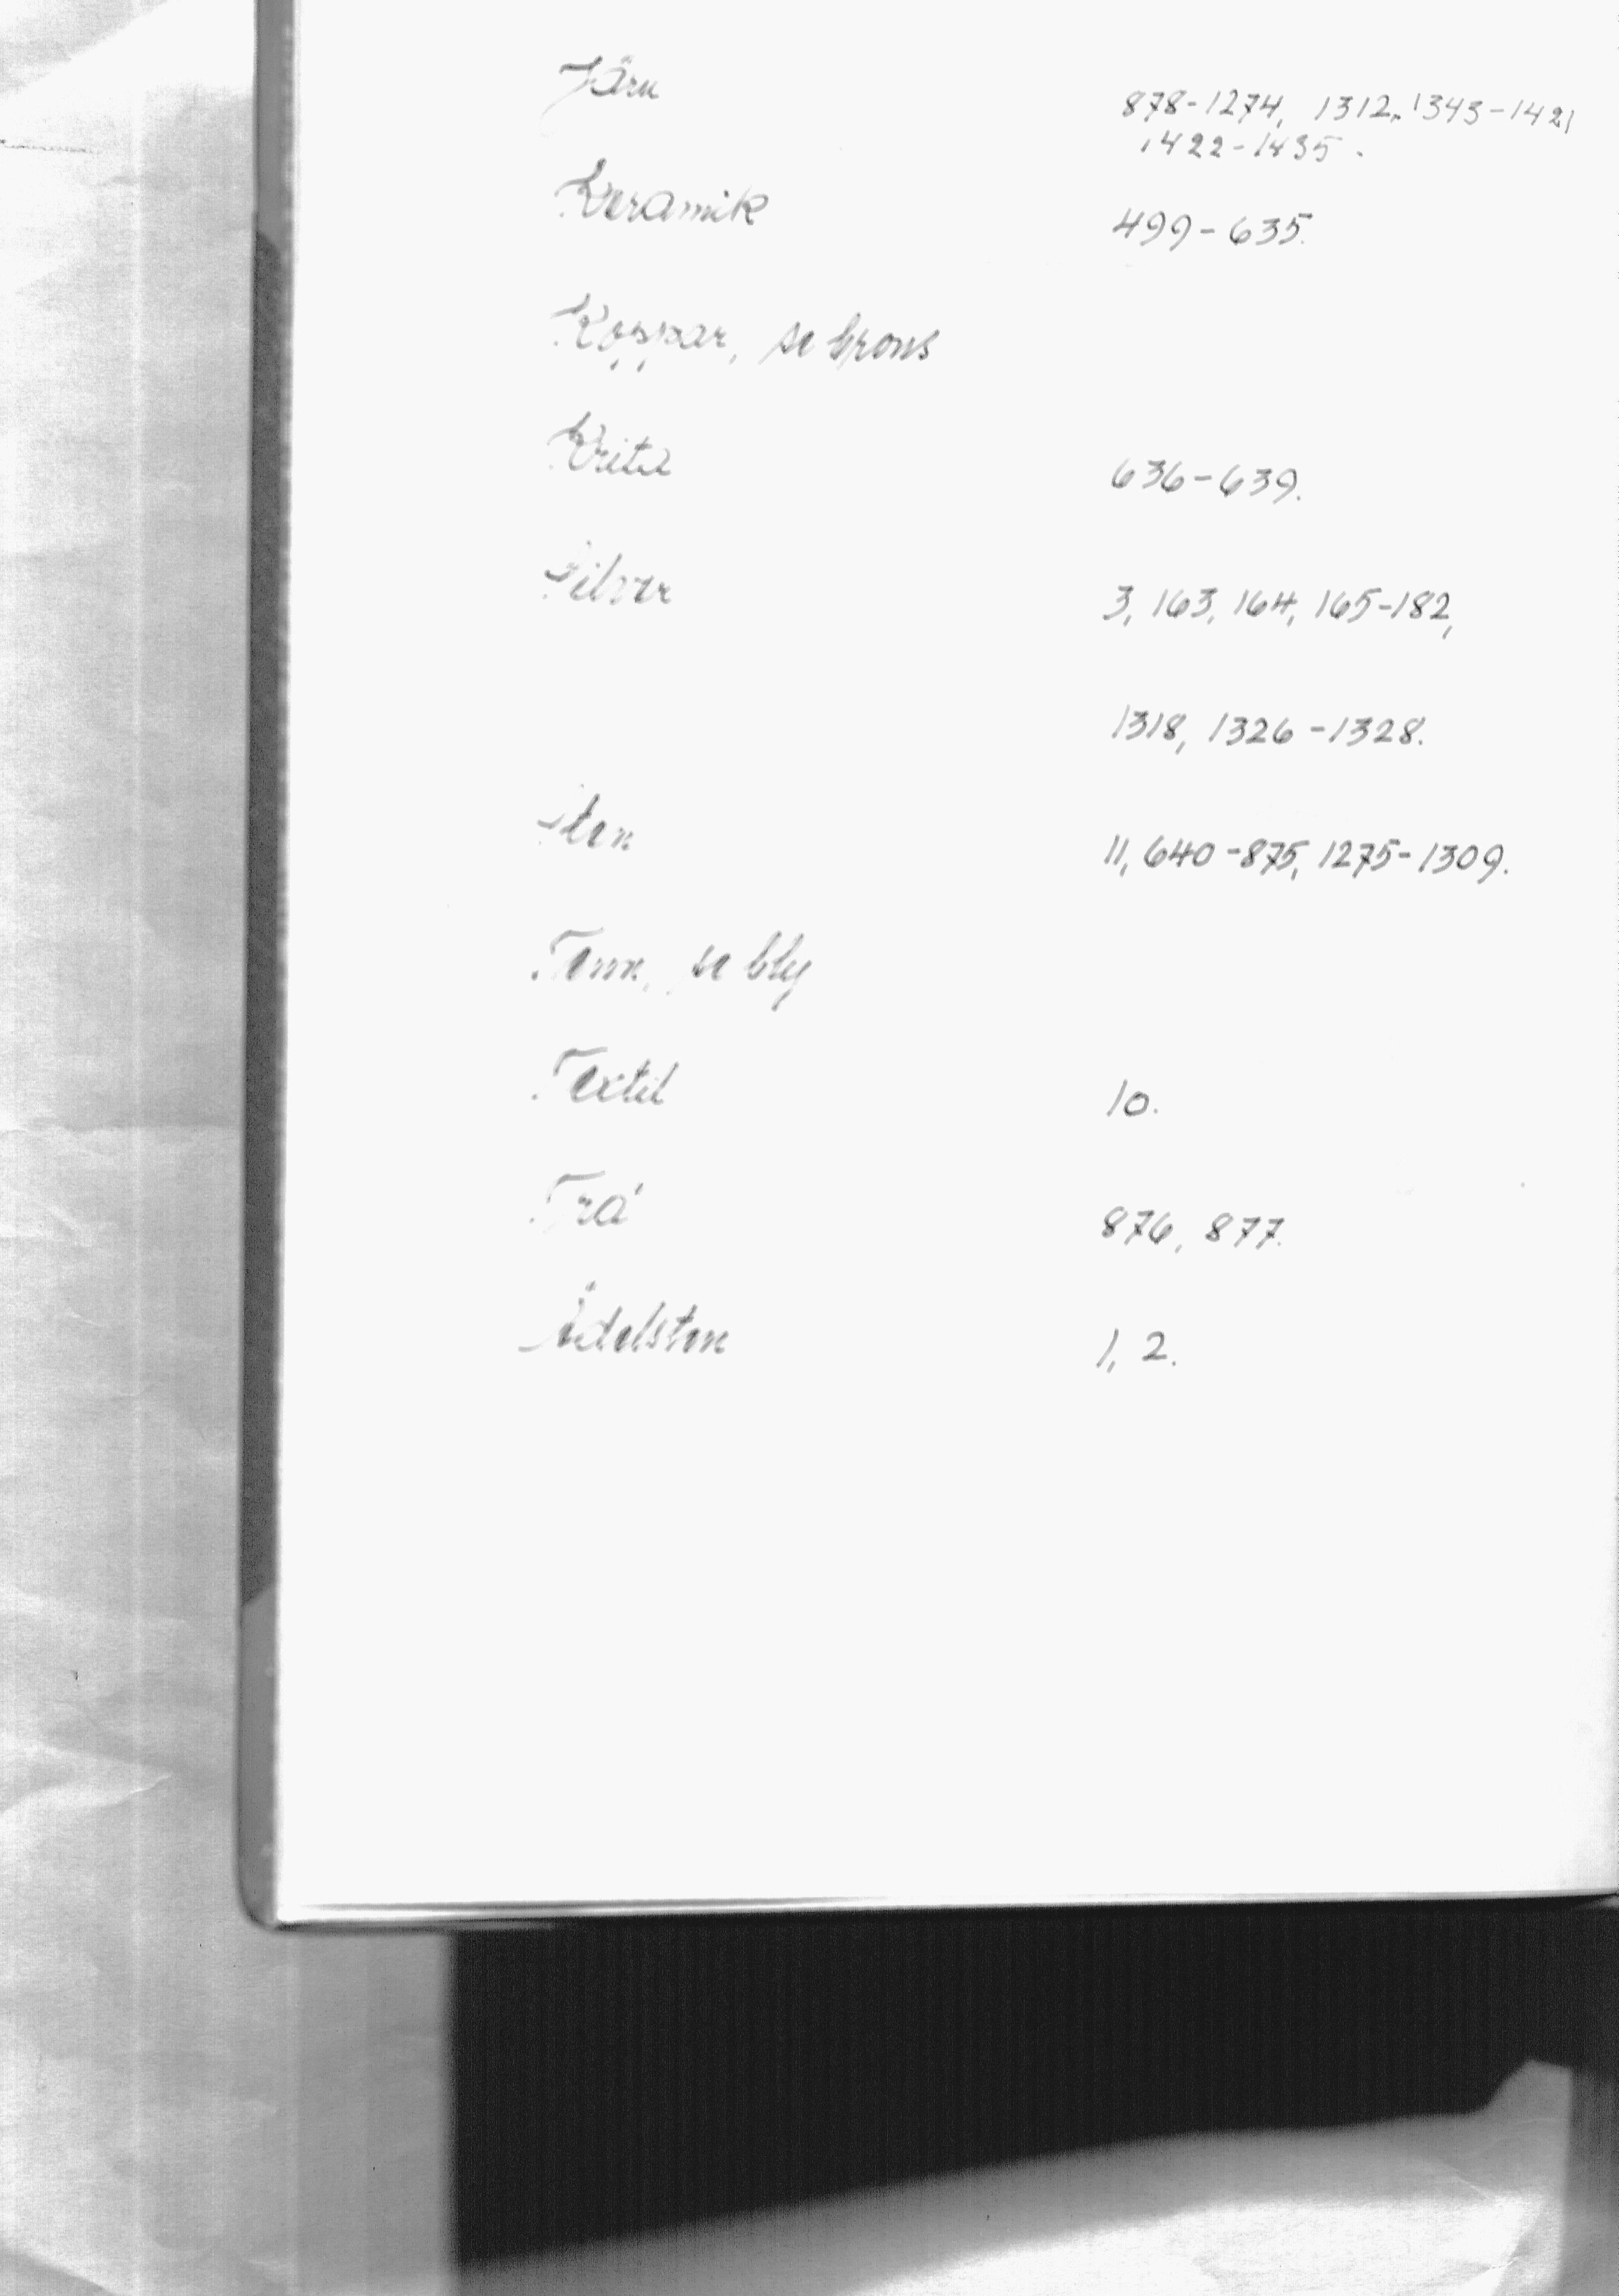 Järn 878-1274, 1312, 1343-1421
1422-1435.
Keramik 499-635.
Koppar, se brons
Krita 636-639.
Silver 3, 163, 164, 165-182,
1318, 1326-1328.
Sten 11, 640-875, 1275-1309.
Tenn, se bly
Textil 10.
Trä 876, 877.
Ädelsten 1, 2.